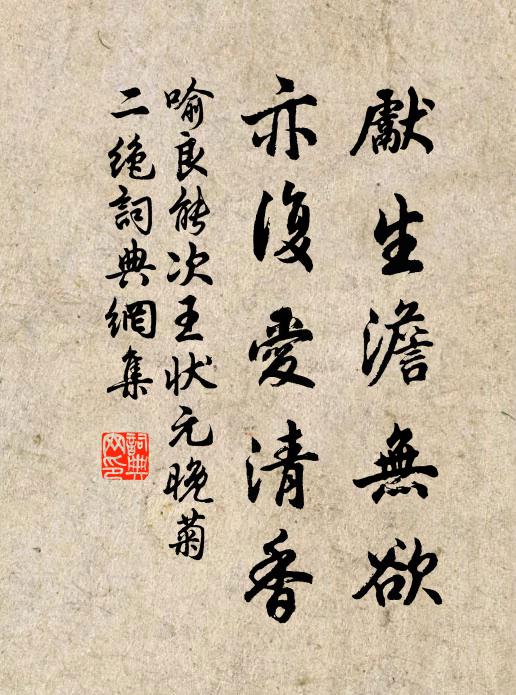 獻生澹無欲
亦復愛清香
喻良能次王狀元晚菊
二絕詞典網集
詞典網印